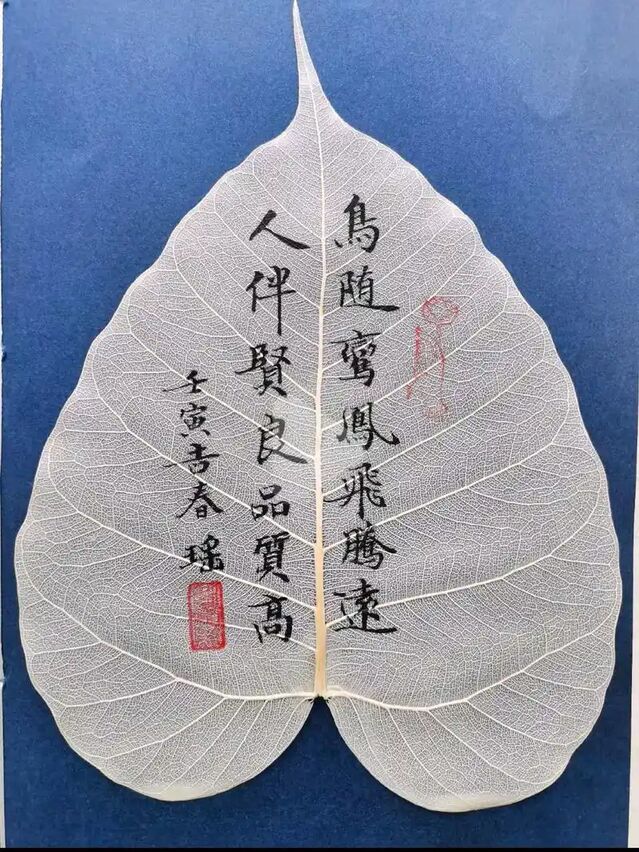 鳥随鸞鳳飛騰遠
人伴賢良品質高
壬寅吉春 瑶